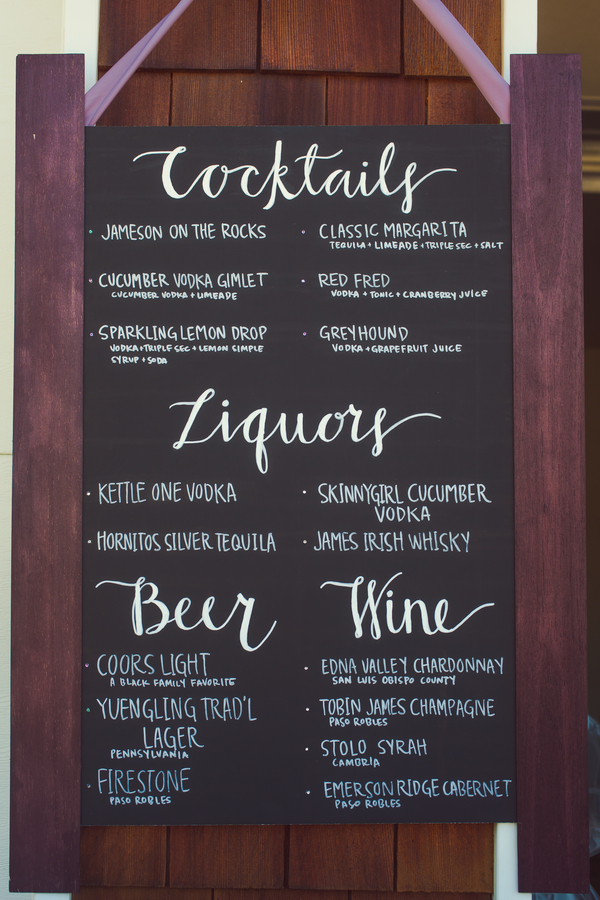 Cocktails
· JAMESON ON THE ROCKS
· CUCUMBER VODKA GIMLET
CUCUMBER VODKA + LIMEADE
· SPARKLING LEMON DROP
VODKA + TRIPLE SEC + LEMON SIMPLE
SYRUP + SODA
· CLASSIC MARGARITA
TEQUILA + LIMEADE + TRIPLE SEC + SALT
· RED FRED
VODKA + TONIC + CRANBERRY JUICE
· GREYHOUND
VODKA + GRAPEFRUIT JUICE
Liquors
· KETTLE ONE VODKA
· HORNITOS SILVER TEQUILA
· SKINNYGIRL CUCUMBER
VODKA
· JAMES IRISH WHISKY
Beer
· COORS LIGHT
A BLACK FAMILY FAVORITE
· YUENGLING TRAD'L
LAGER
PENNSYLVANIA
· FIRESTONE
PASO ROBLES
Wine
· EDNA VALLEY CHARDONNAY
SAN LUIS OBISPO COUNTY
· TOBIN JAMES CHAMPAGNE
PASO ROBLES
· STOLO SYRAH
CAMBRIA
· EMERSON RIDGE CABERNET
PASO ROBLES